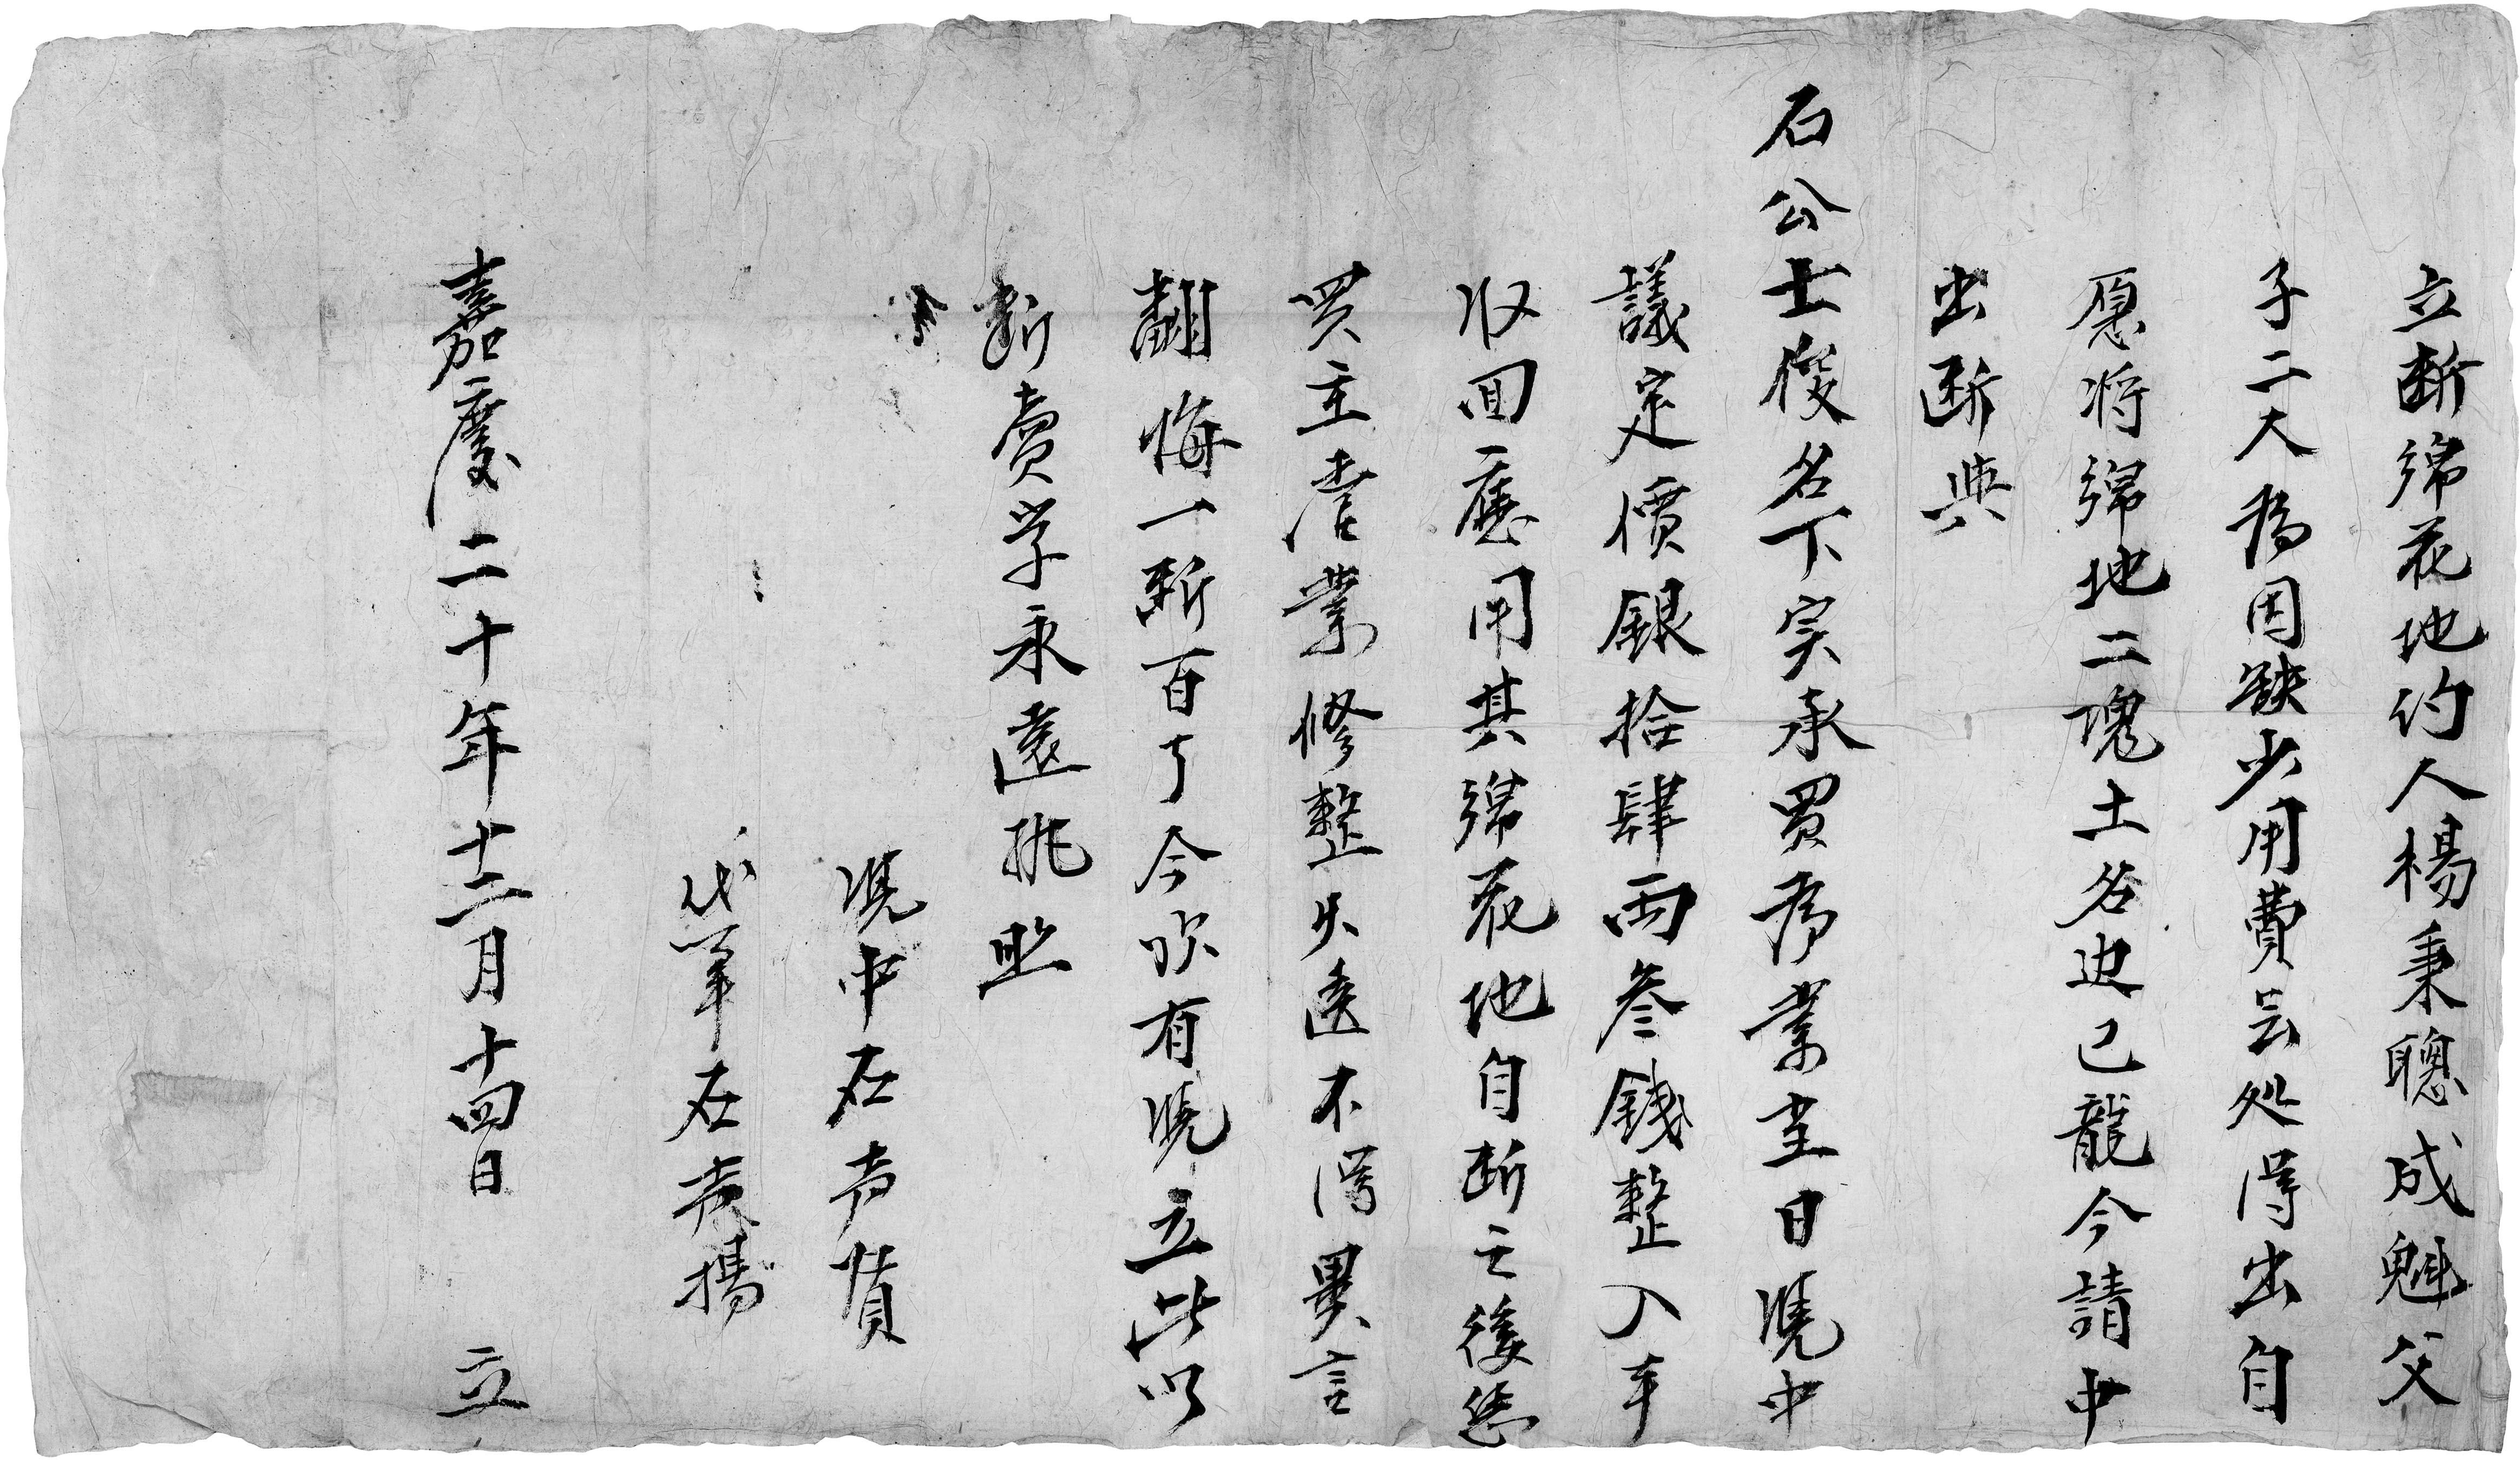 立断綿花地约人楊秉聰成魁父
子二大為因缺少用費芸处得出自
愿将綿地二塊土名边己龍今請中
出断與
石公士俊名下实承買為業当日凴中
議定價銀拾肆両叁錢整入手
収回應用其綿花地自断之後凴
買主管業修整失遠不得異言
翻悔一断百了今欲有凴立此以
断賣字永遠執照
凴中石声
代笔石声揚
嘉慶二十年十二月十四日 立